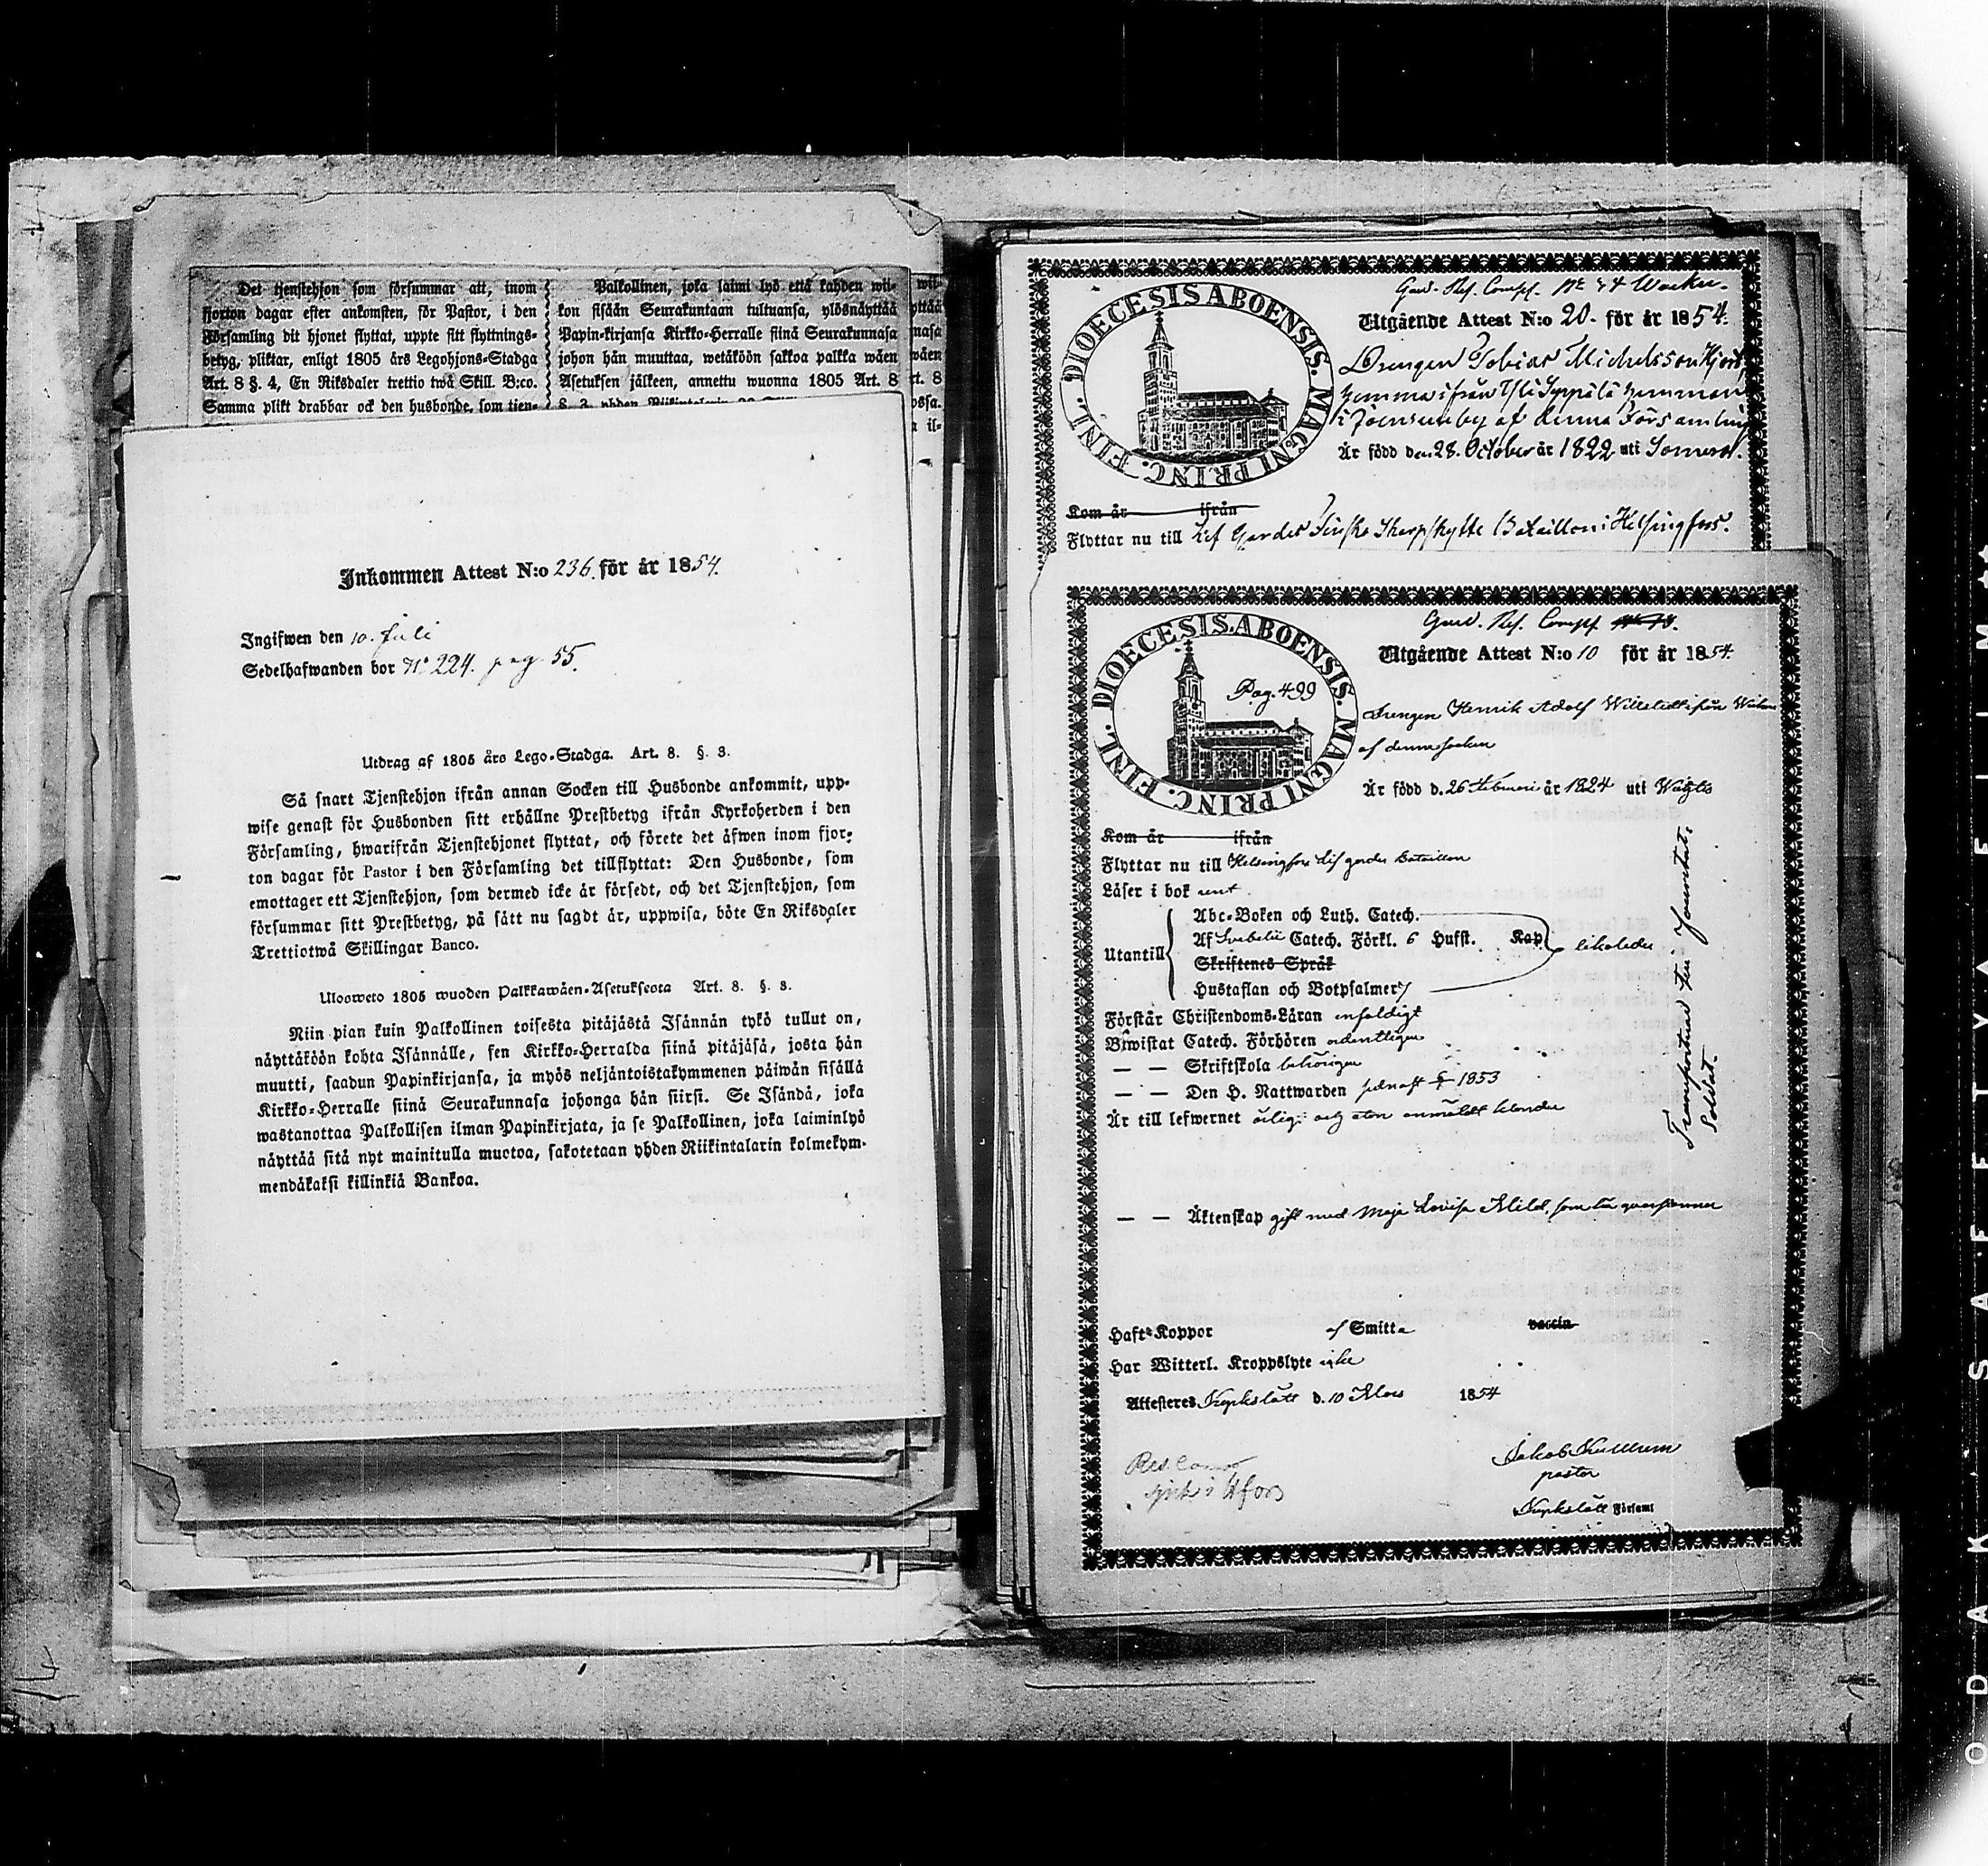 Det tjenstehjon som försummar att, inom
fjorton dagar efter ankomsten, för Pastor, i den
Församling dit hjonet flyttat, uppte sitt flyttnings-
betyg, pliktar, enligt 1805 års Legohjons-Stadga
Art. 8 §. 4, En Riksdaler trettio twå Skill. B:co.
Samma plikt drabbar ock den husbonde, som tien-
Palkollinen, joka laimi lyö että kahden wii-
kon sisään Seurakuntaan tultuansa, ylösnäyttää
Papin-kirjansa Kirkko-Herralle siinä Seurakunnasa
johon hän muuttaa, wetäköön sakkoa palkka wäen
Asetuksen jälkeen, annettu wuonna 1805 Art. 8
Inkommen Attest N:o 236. för år 1854.
Ingifwen den 10. Juli
Sedelhafwanden bor N° 224. pag. 55.
Utdrag af 1805 års Lego-Stadga. Art. 8. §. 3.
Så snart Tjenstehjon ifrån annan Socken till Husbonde ankommit, upp-
wise genast för Husbonden sitt erhållne Prestbetyg ifrån Kyrkoherden i den
Församling, hwarifrån Tjenstehjonet flyttat, och förete det äfwen inom fjor-
ton dagar för Pastor i den Församling det tillflyttat: Den Husbonde, som
emottager ett Tjenstehjon, som dermed icke är försedt, och det Tjenstehjon, som
försummar sitt Prestbetyg, på sätt nu sagdt är, uppwisa, böte En Riksdaler
Trettiotwå Skillingar Banco.
Ulosweto 1805 wuoden Palkkawäen-Asetuksesta Art. 8. §. 3.
Niin pian kuin Palkollinen toisesta pitäjästä Isännän tykö tullut on,
näyttäköön kohta Isännälle, sen Kirkko-Herralda siinä pitäjäsä, josta hän
muutti, saadun Papinkirjansa, ja myös neljäntoistakymmenen päiwän sisällä
Kirkko-Herralle siinä Seurakunnasa johonga hän siirsi. Se Isändä, joka
wastanottaa Palkollisen ilman Papinkirjata, ja se Palkollinen, joka laiminlyö
näyttää sitä nyt mainitulla muotoa, sakotetaan yhden Riikintalarin kolmekym-
mendäkaksi killinkiä Bankoa.
DIOECESIS ABOENSIS. MAGNI PRINC. FINL.
Utgående Attest N:o 20. för år 1854.
Drengen Tobias Michelsson
i Joensuuby af denna Församling
Är född den 28. October år 1822 uti Somero.
Kom år ifrån
Flyttar nu till Lif Gardes Finska Skarpskytte Bataillon i Helsingfors.
DIOECESIS ABOENSIS. MAGNI PRINC. FINL.
Pag. 499
Utgående Attest N:o 10 för år 1854.
Drengen Henrik Adolf
af denna socken
Är född d. 26 Februari år 1824 uti
Kom år ifrån
Flyttar nu till Helsingfors Lif gardes Bataillon
Läser i bok rent
Utantill
Abc-Boken och Luth. Catech.
Af Svebelii Catech. Förkl. 6 Hufst. Kap
Skriftenes Språk
Hustaflan och Botpsalmer
likaledes
Förstår Christendoms-Läran enfaldigt
Biwistat Catech. Förhören ordentligen
— — Skriftskola behörigen
— — Den H. Nattwarden senast 1853
Är till lefwernet ärlig
— — Äktenskap gift med Maja Lovisa
Haft Koppor af Smitta vaccin
Har Witterl. Kroppslyte icke
Attesteres d. 10 Mars 1854
Jakob
pastor
Församl
Soldat.